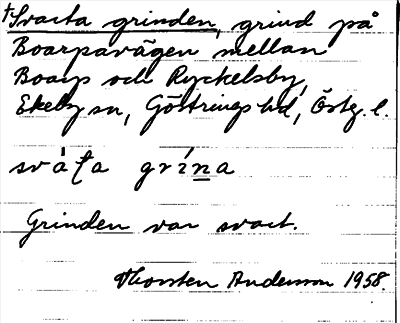 †Svarta grinden, grind på
Boarpavägen mellan
Boarp och Ryckelsby,
Ekeby sn, Göstrings hd, Östg. l.
Grinden var svart.
Thorsten Andersson 1958.